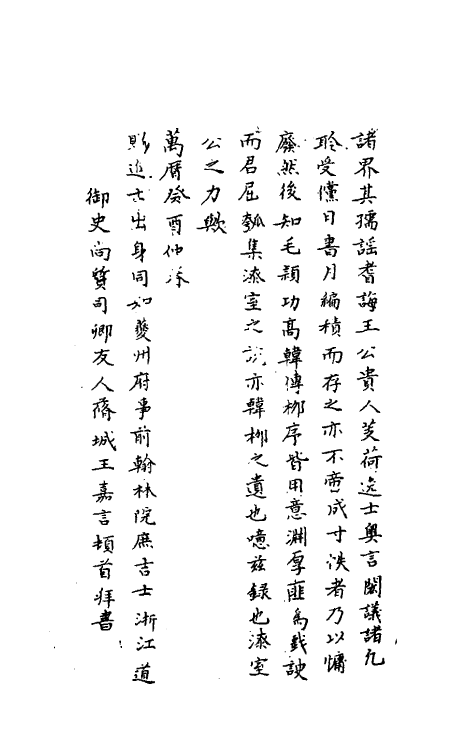 諸界其孺謡耆誨王公貴人芰荷逸士輿言閎議諸凡
聆受儻日書月編積而存之亦不啻成寸帙者乃以慵
廢然後知毛穎功髙韓傳栁序皆用意淵厚匪為戱諛
而君屈瓠集漆室之說亦韓栁之遺也噫兹録也漆室
公之力歟
萬曆癸酉仲冬
賜進士出身同知夔州府事前翰林院庶吉士浙江道
御史尚寳司卿友人蓨城王嘉言頓首拜書